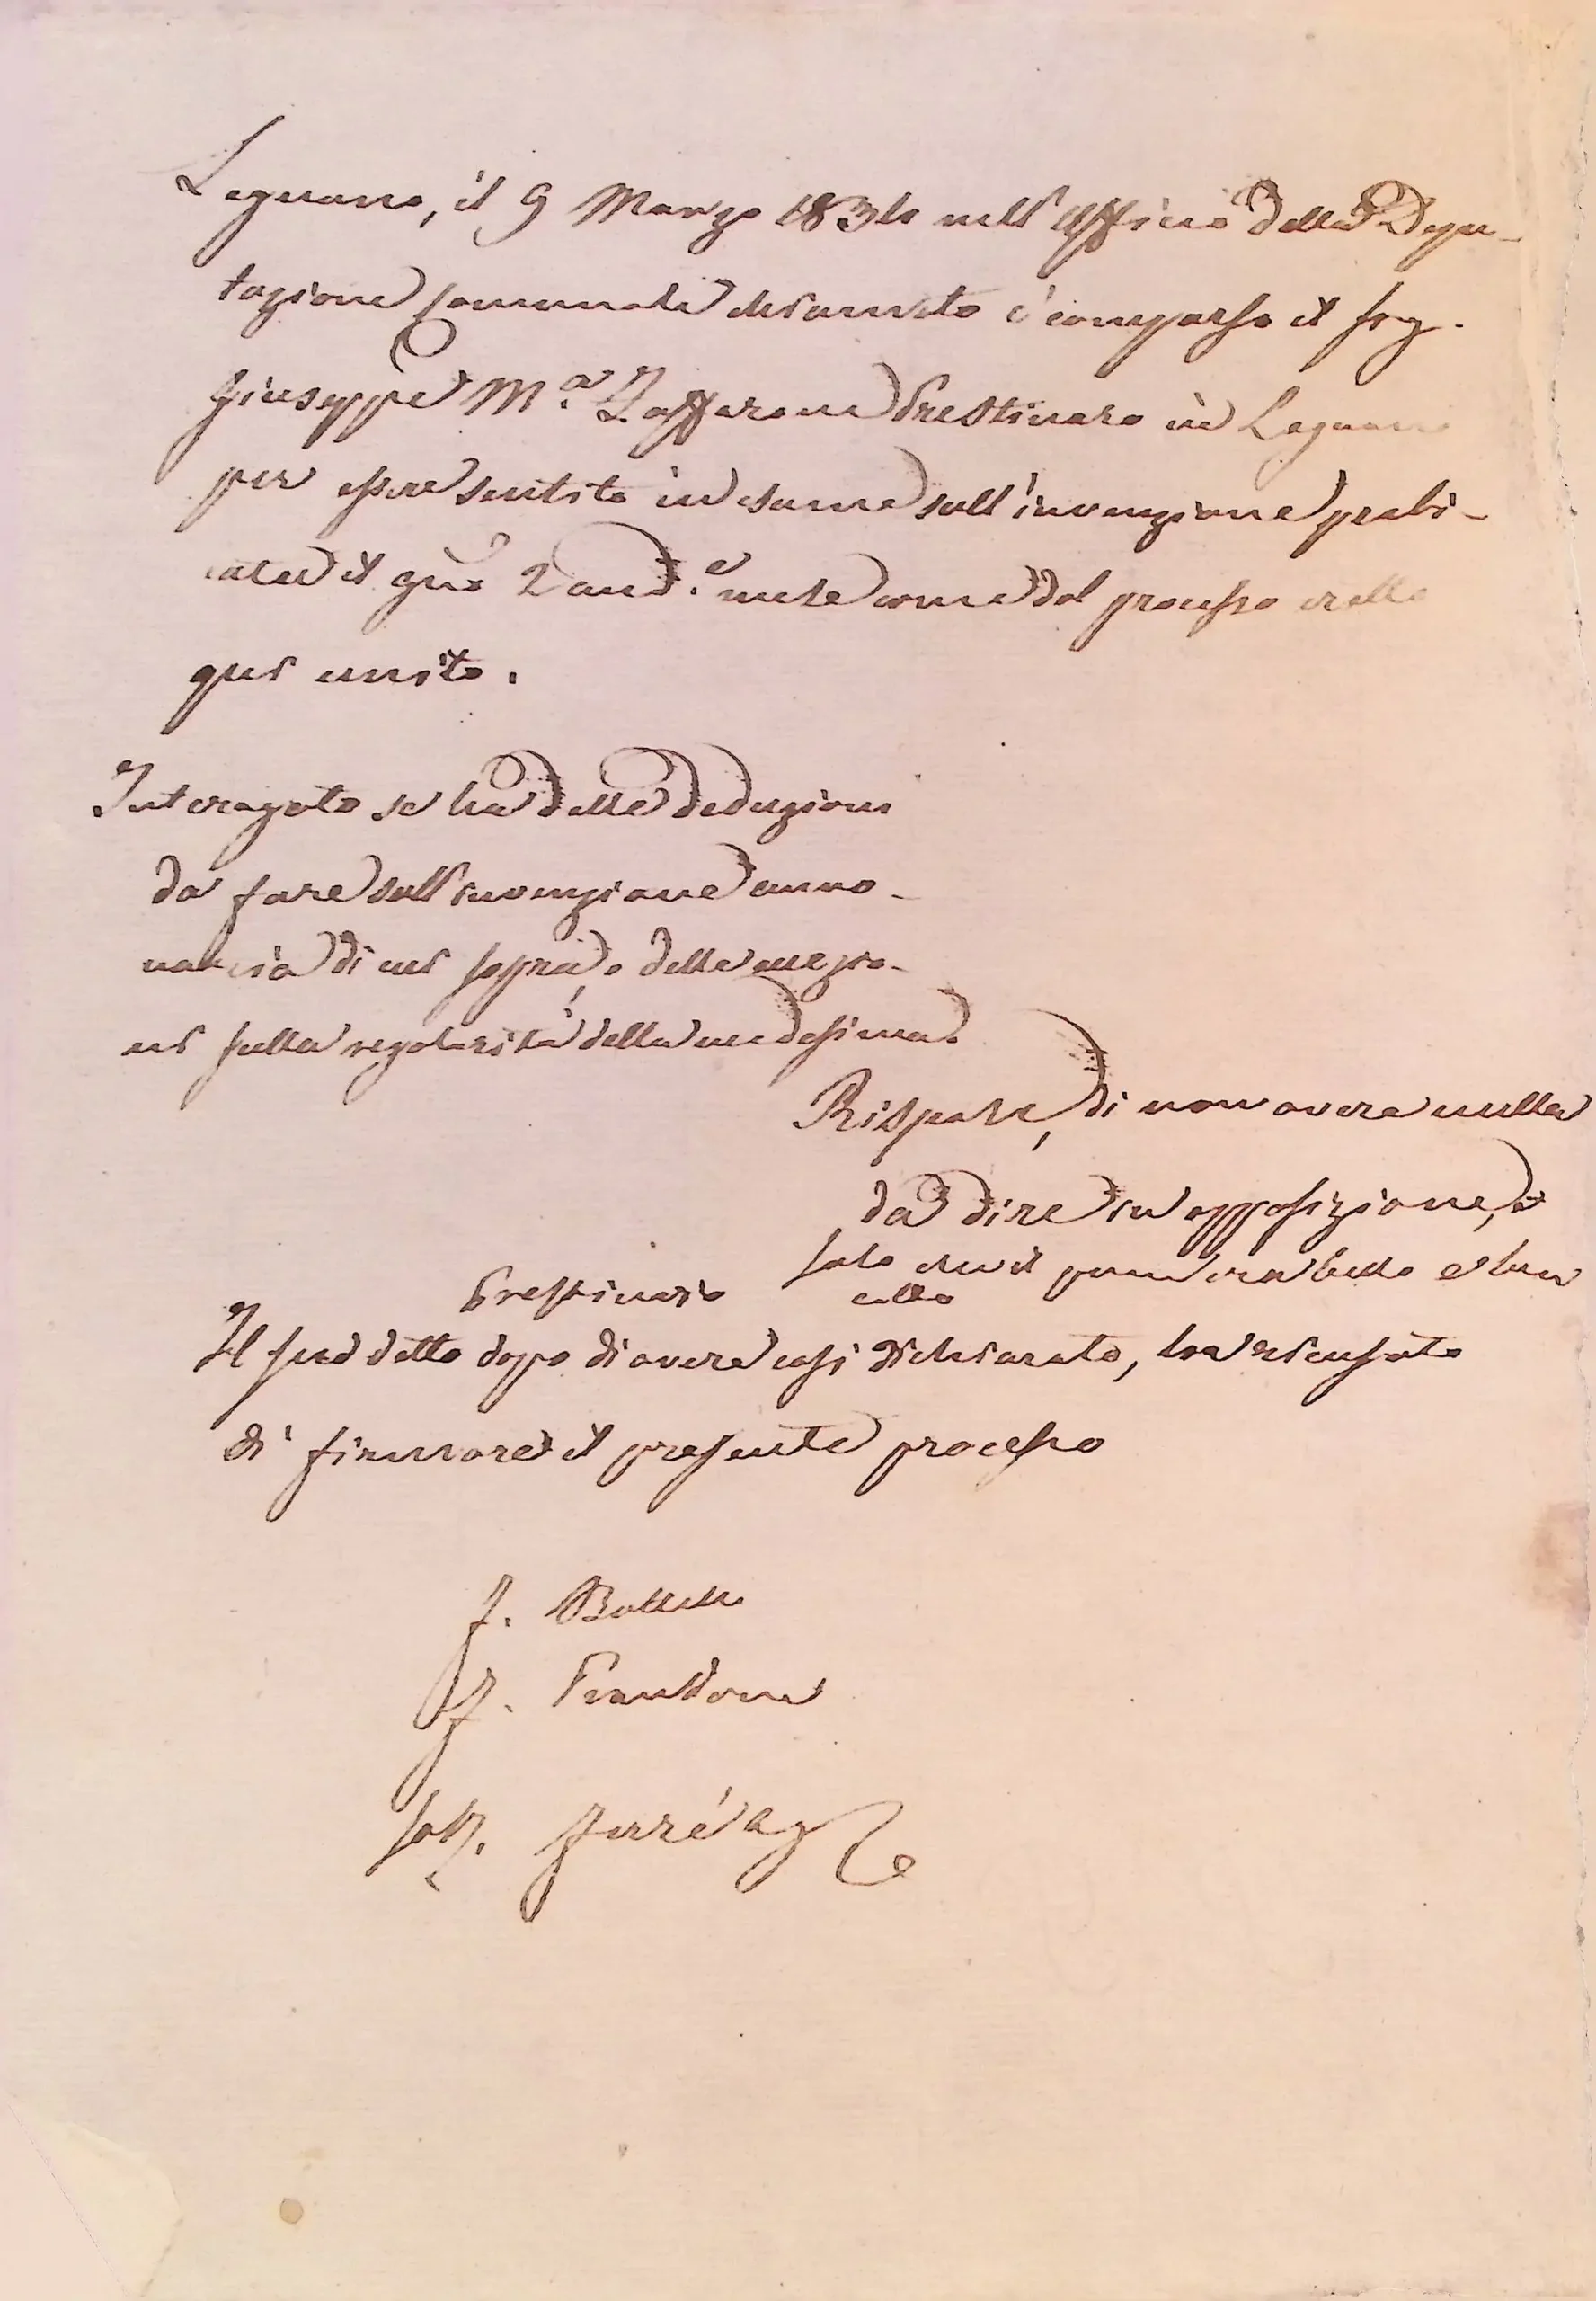 Legnano, il 9 Marzo 1834 nell'Ufficio della Depu-
tazione Comunale chiamato è comparso il Sig.
Giuseppe M.a Zaffarone Prestinaro in Legnano
per essere sentito in esame sull'invenzione prati-
cata il gno 2 and.e mese come dal processo
qui unito.
Interogato se ha delle deduzioni
da fare sull'invenzione anno-
naria di cui sopra, o delle eccezio-
ni sulla regolarità della medesima.
Rispose, di non avere nulla
da dire in opposizione, e
solo che il pane era bello e ben
cotto
Prestinaro
Il suddetto dopo di avere così dichiarato, ha ricusato
di firmare il presente processo
f. Bottelli
f. Prandoni
sott. Ferré Ag